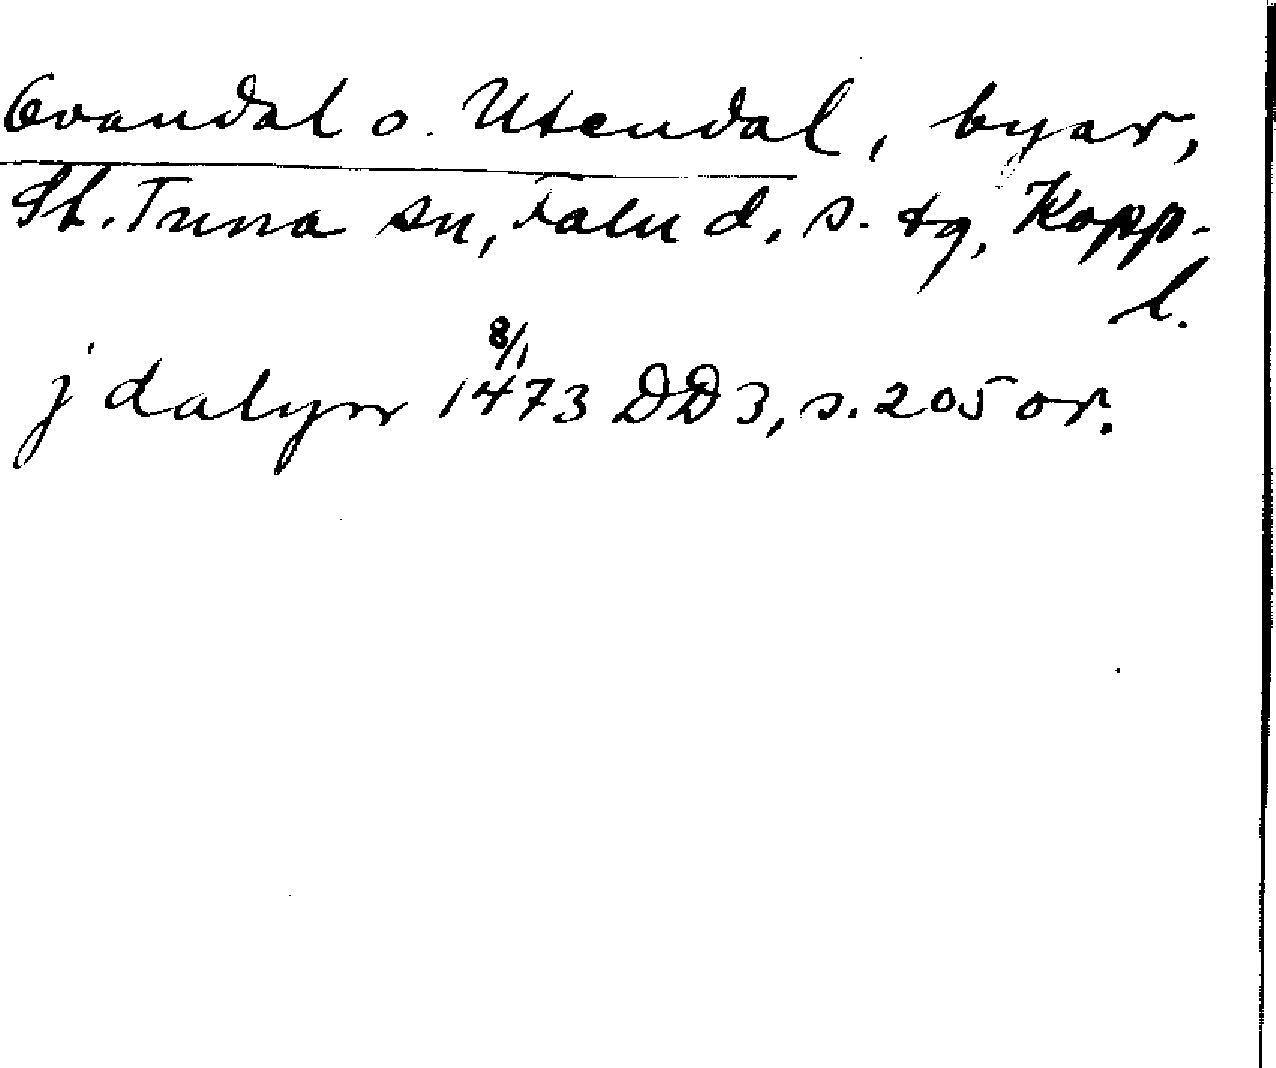 Ovandal o. Utendal, byar,
St. Tuna sn, Falu d. s. tg, Kopp-
l.
j dalyrr 1473 8/1 DD3, s. 205 or.